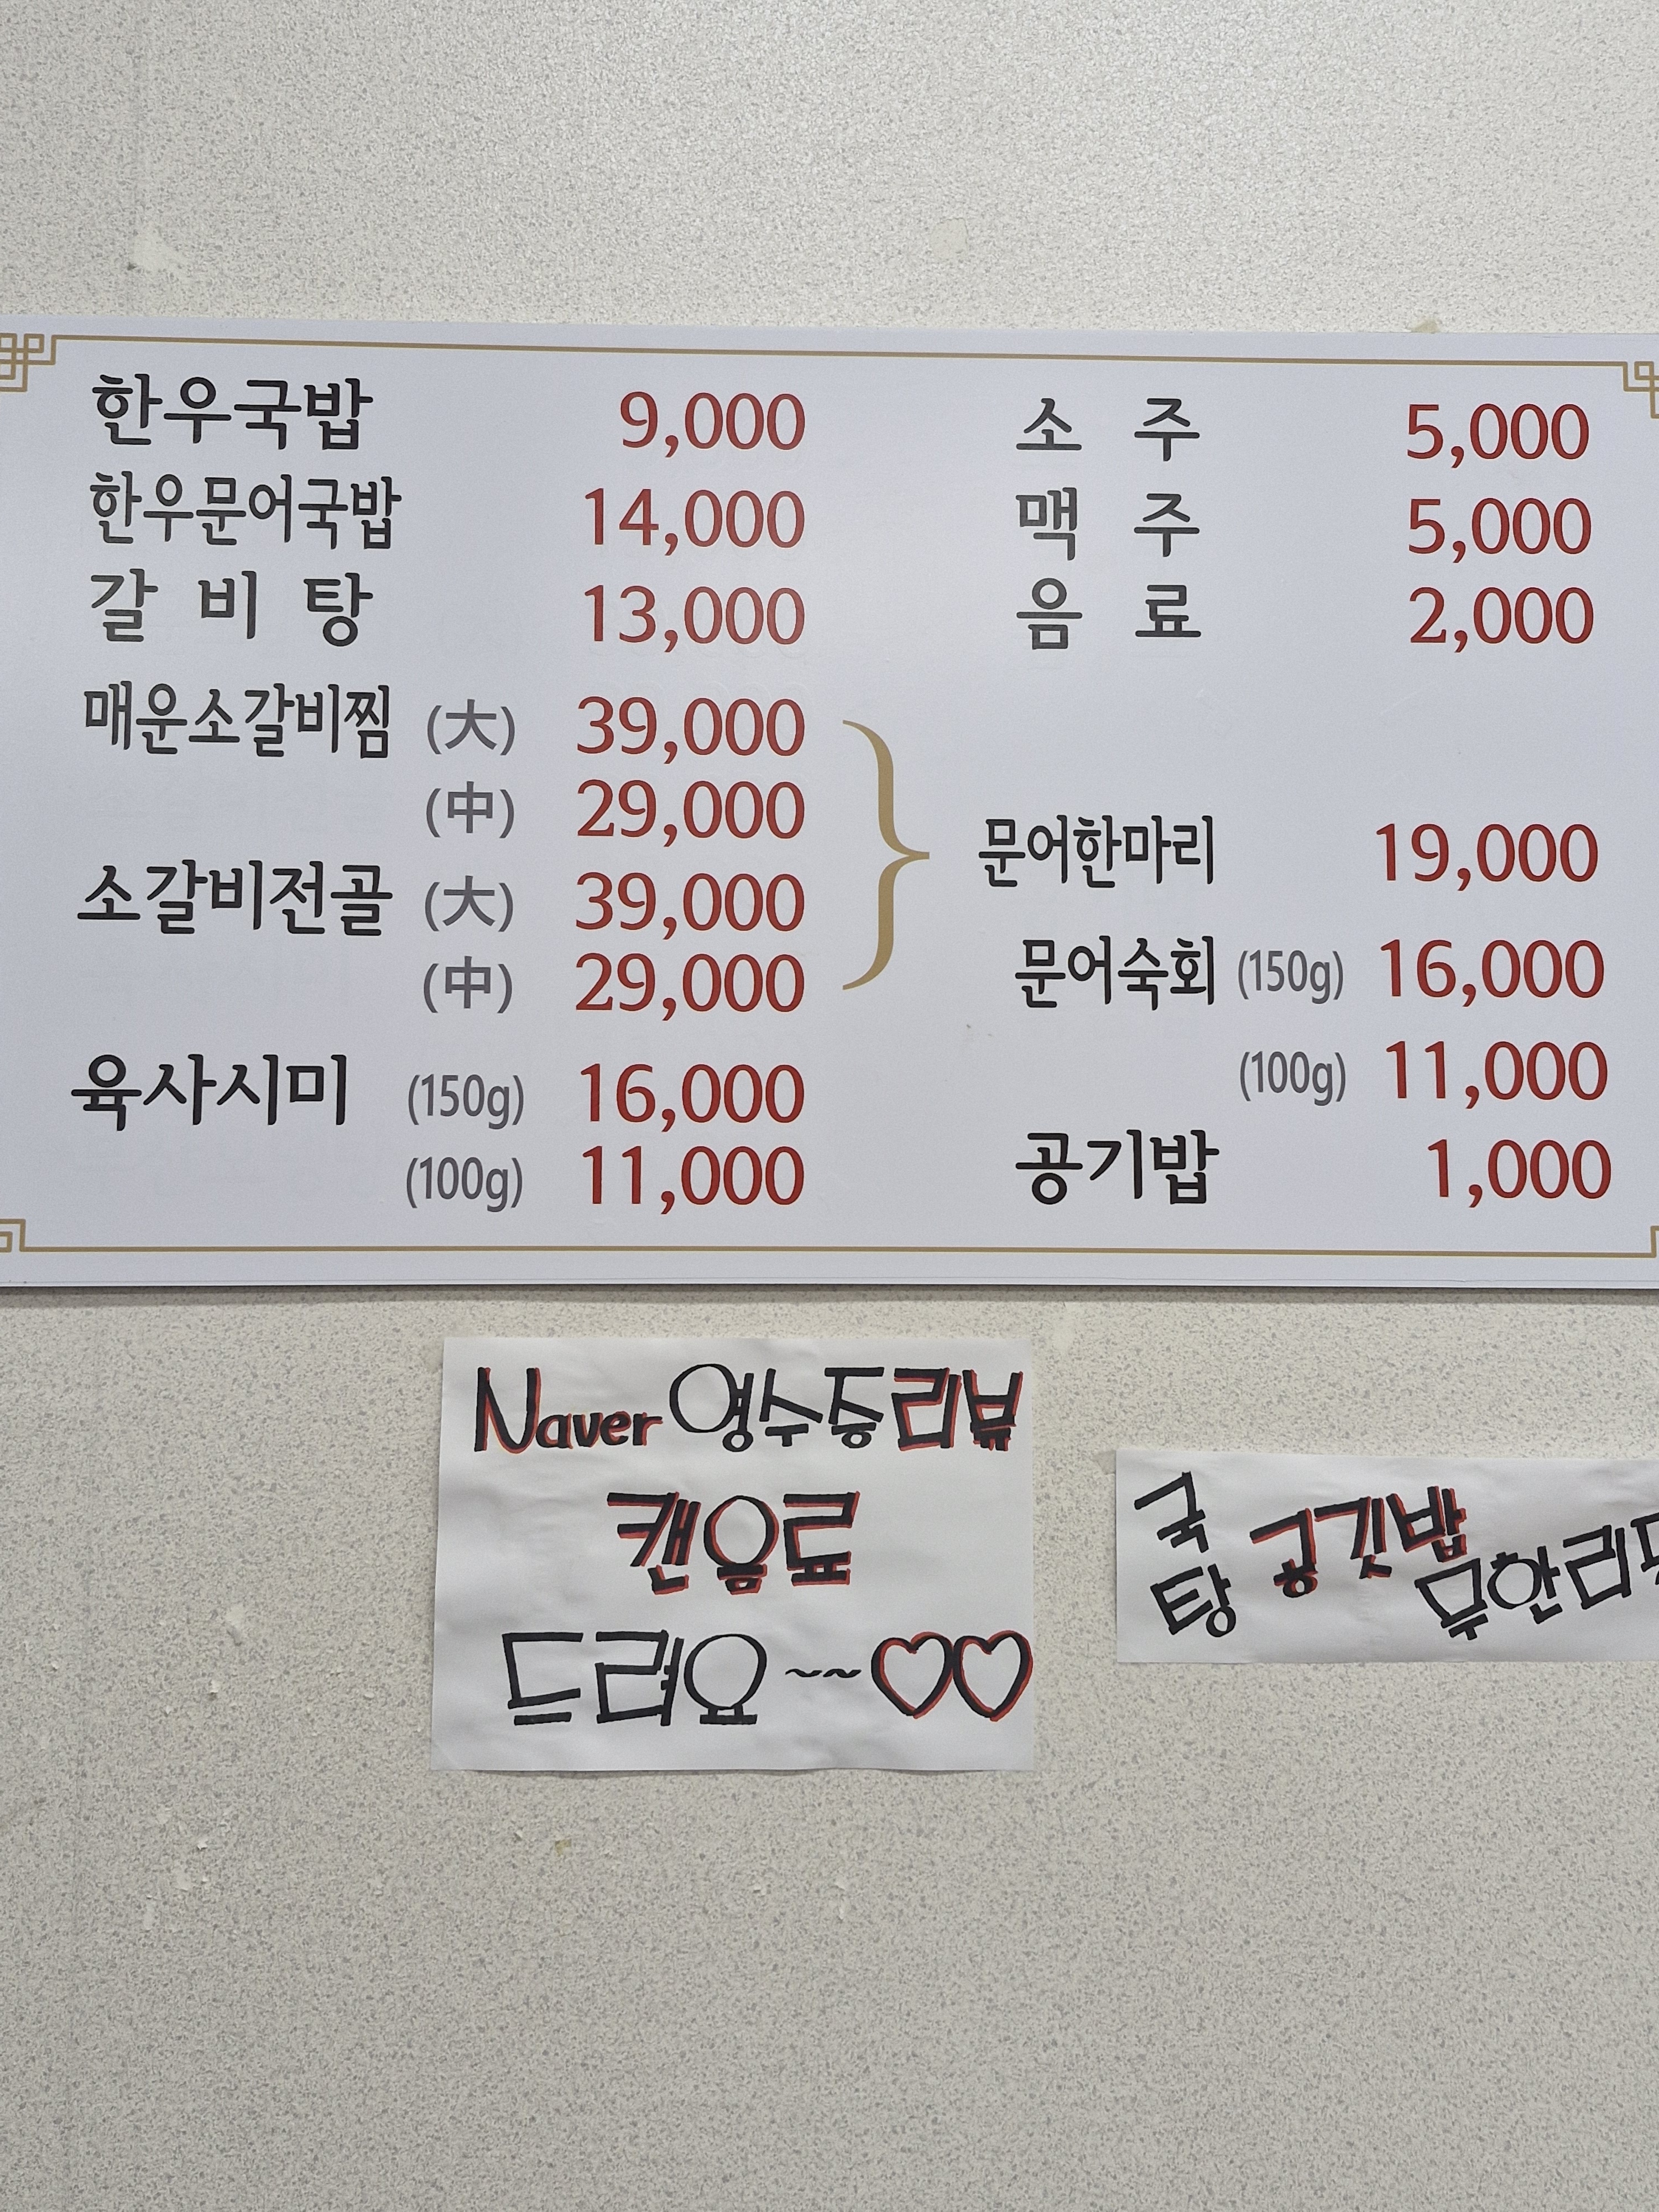 한우국밥 9,000
한우문어국밥 14,000
갈 비 탕 13,000
매운소갈비찜 (大) 39,000
(中) 29,000
소갈비전골 (大) 39,000
(中) 29,000
육사시미 (150g) 16,000
(100g) 11,000
소 주 5,000
맥 주 5,000
음 료 2,000
문어한마리 19,000
문어숙회 (150g) 16,000
(100g) 11,000
공기밥 1,000
Naver 영수증리뷰
캔음료
드려요~~♡♡
국
탕
공깃밥
무한리